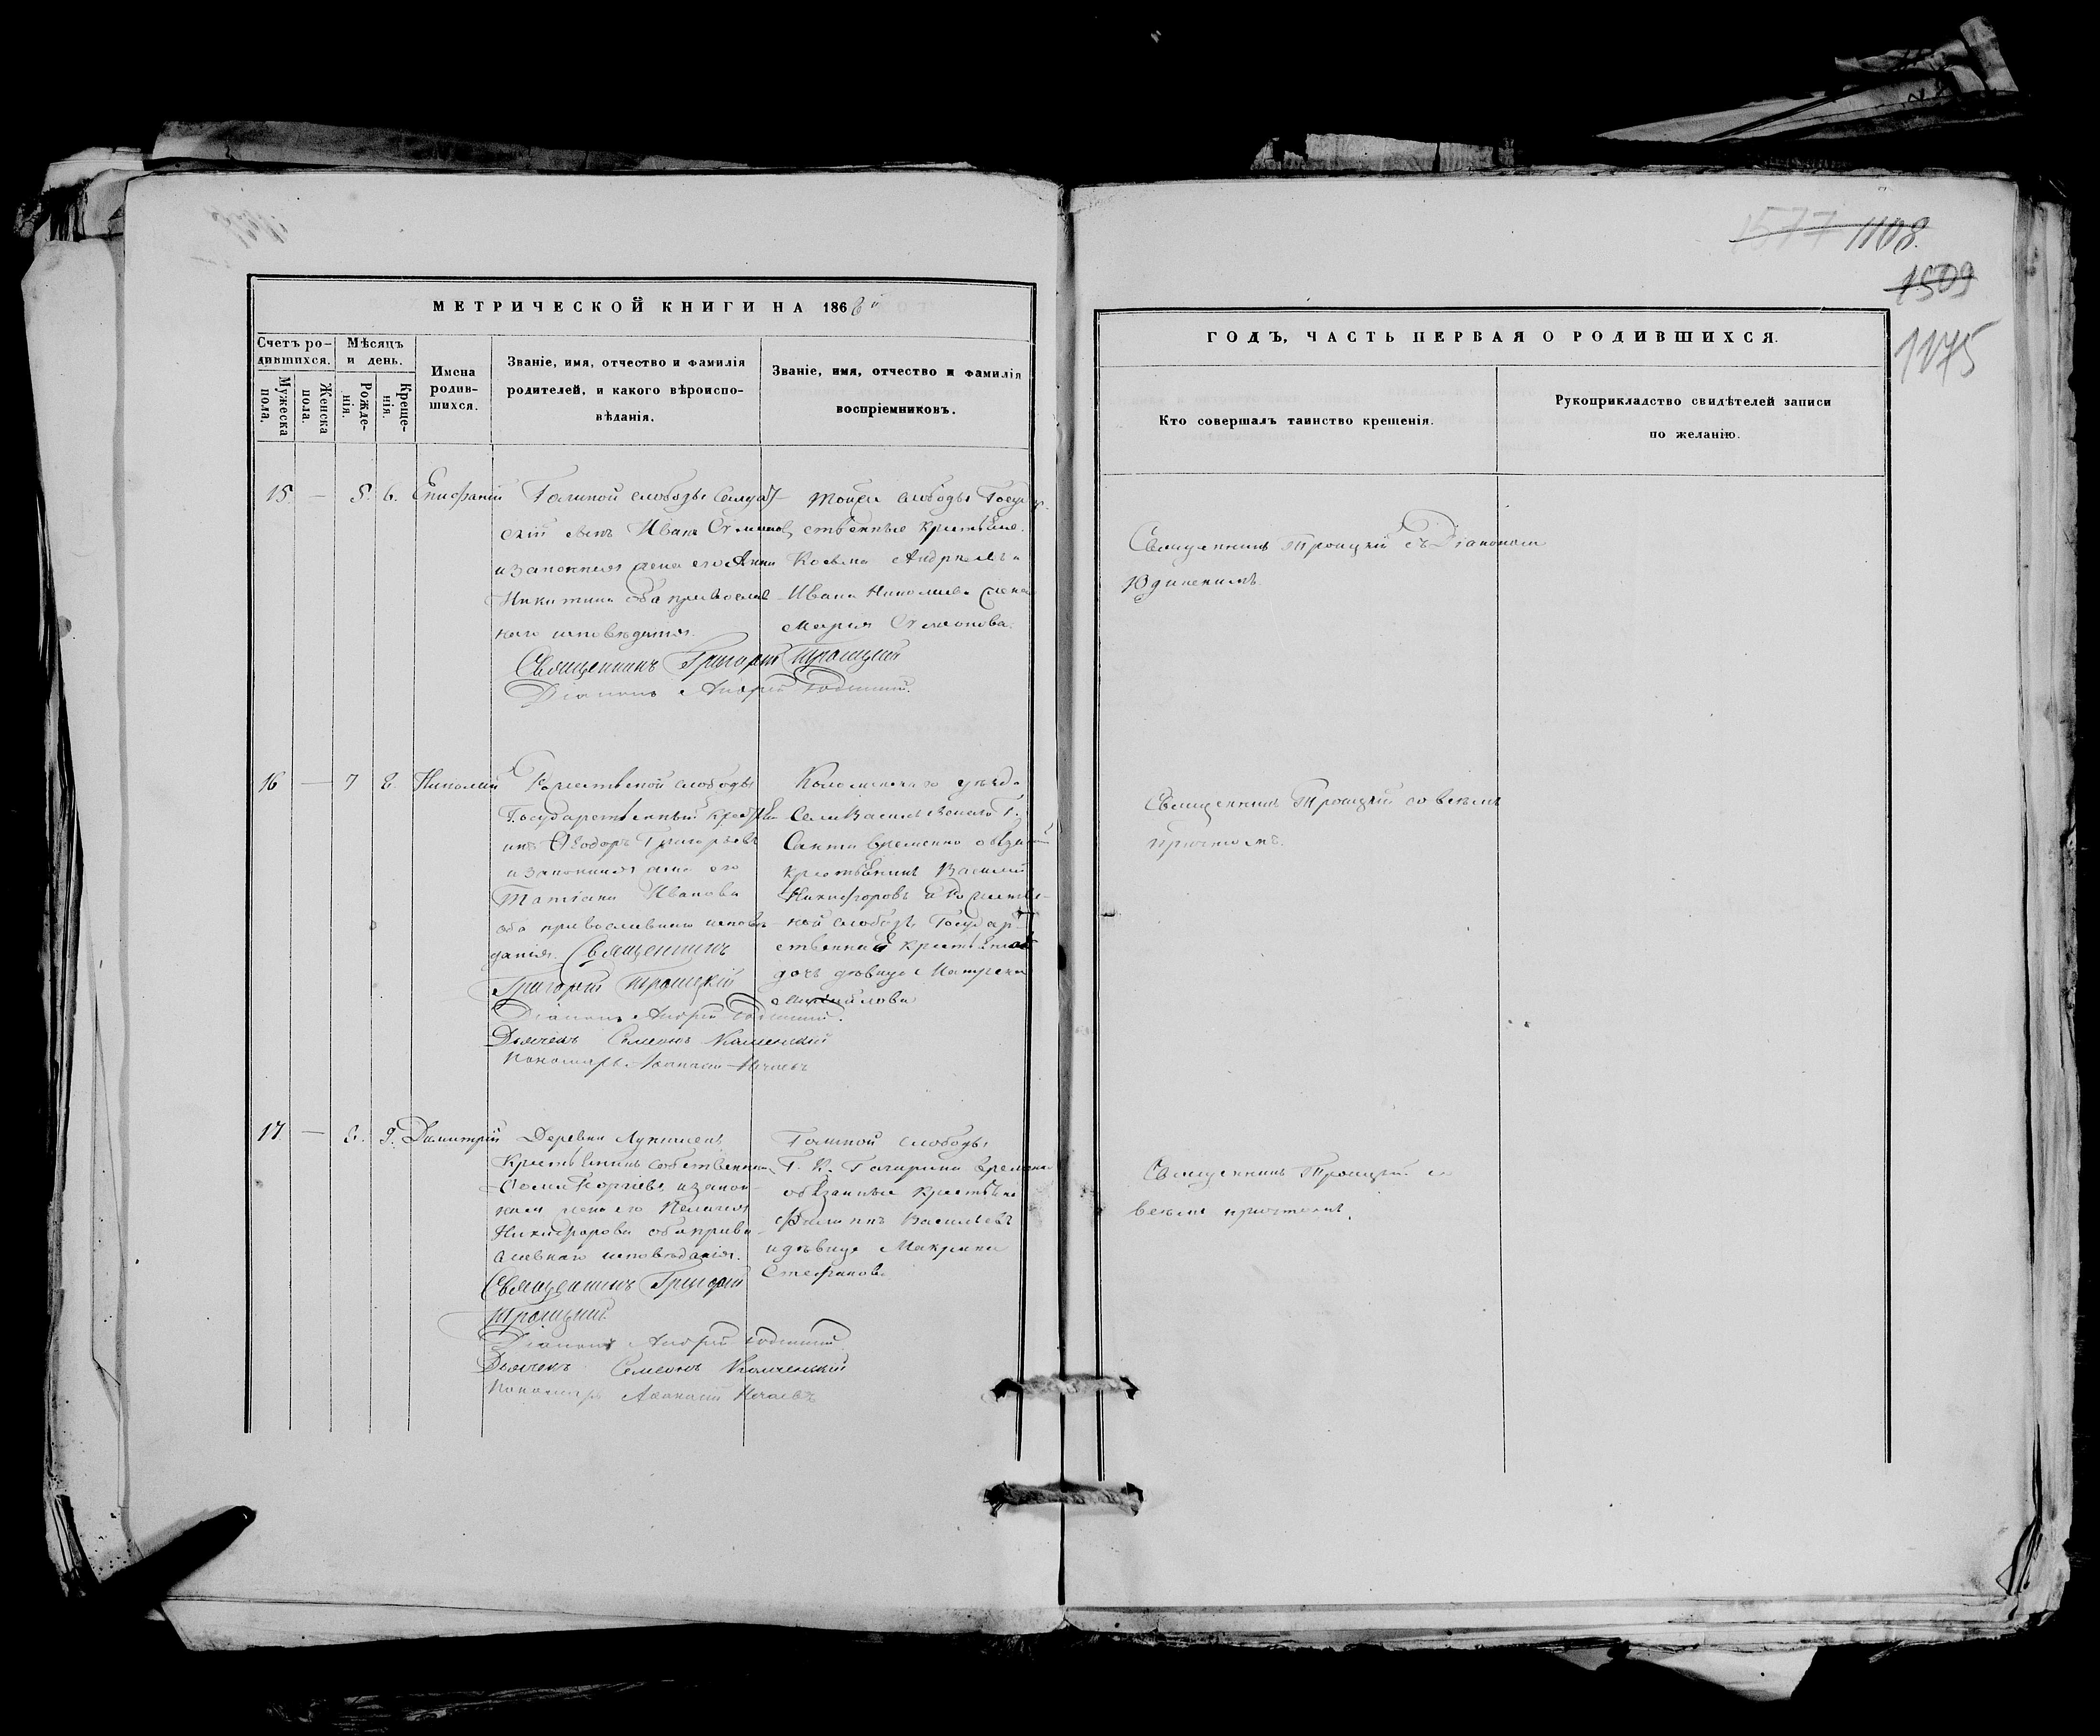 1577 1108.
1509
1175
МЕТРИЧЕСКОЙ КНИГИ НА 1868й
ГОДЪ, ЧАСТЬ ПЕРВАЯ О РОДИВШИХСЯ.
Счетъ ро-
дившихся.
Мужеска
пола.
Женска
пола.
Мѣсяцъ
и день.
Рожде-
нія.
Креще-
нія.
Имена
родив-
шихся.
Званіе, имя, отчество и фамилія
родителей, и какого вѣроиспо-
вѣданія.
Званіе, имя, отчество и фамилія
воспріемниковъ.
Кто совершалъ таинство крещенія.
Рукоприкладство свидѣтелей записи
по желанію.
15. — 5. 6. Епифаній
слободы
Иванъ
и законная жена его Анна
Никитина оба православ-
наго исповѣданія.
Священникъ Григорій Троицкій
Діаконъ Андрей
тойже слободы Госуд
ственные крестьяне
Козьма Андреевъ и
Ивана Николаева жена
Марія
Священникъ Троицкій съ Діакономъ
16 — 7 8. Николай
слободы
Государственный крестьян
инъ Ѳеодоръ Григорьевъ
и законная жена его
Татіана Иванова
оба православнаго исповѣ
данія. Священникъ
Григорій Троицкій
Діаконъ Андрей
Дьячекъ Симеонъ Каменскій
Пономарь Афанасій Нечаевъ
Коломенскаго уѣзда
Села Васильевскаго Г.
временно обязанный
крестьянинъ Василій
Никифоровъ и
ной слободы Государ-
ственнаго крестьянина
дочь дѣвица Матрена
Священникъ Троицкій со всѣмъ
причтомъ.
17. — 8. 9. Димитрій
Деревни
Крестьянинъ собственникъ
и закон-
ная жена его Пелагея
Никифорова оба право-
славнаго исповѣданія.
Священникъ Григорій
Троицкій
Діаконъ Андрей
Дьячекъ Симеонъ Каменскій
Пономарь Афанасій Нечаевъ
слободы
Г. К. Гагарина временно
обязанные крестьяне
Филиппъ Васильевъ
и дѣвица Макрина
Стефанова
Священникъ Троицкій со
всѣмъ причтомъ.